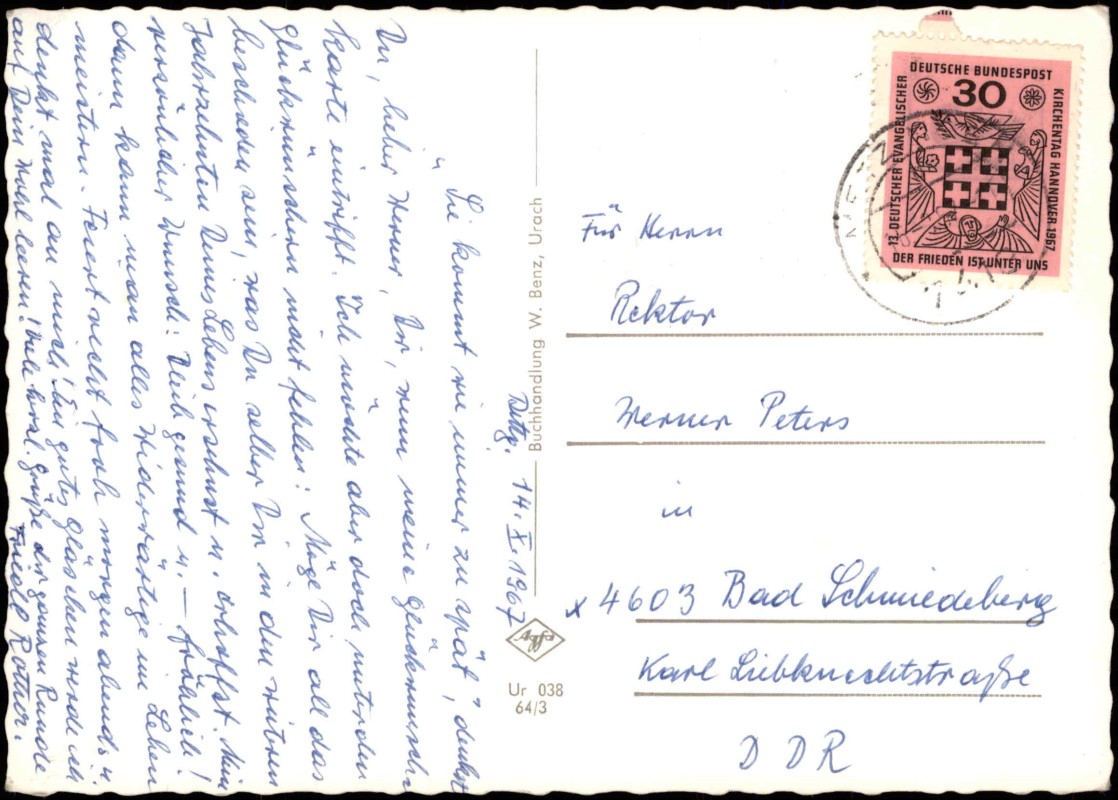 Dttg. 14. X. 1967
„Sie kommt wie immer zu spät“, denkst
Du, lieber Werner, Dir, wenn meine Glückwunsch-
karte eintrifft. Ich möchte aber doch unter den
Glückwünschern nicht fehlen: Möge Dir all das
beschieden sein, was Du selber Dir in den weiteren
Jahrzehnten Deines Lebens ersehnst u. erhoffst. Mein
persönlicher Wunsch: Bleib gesund u. — fröhlich!
dann kann man alles Widerwärtige im Leben
meistern. Feiert recht froh morgen abend u.
denkt mal an mich! Ein gutes Gläschen werde ich
auf Dein Wohl leeren! Viele herzl. Grüße der ganzen Runde
Friedl Rother.
Buchhandlung W. Benz, Urach
Agfa
Ur 038
64/3
DEUTSCHE BUNDESPOST
30
13. DEUTSCHER EVANGELISCHER
KIRCHENTAG HANNOVER 1967
DER FRIEDEN IST UNTER UNS
Für Herrn
Rektor
Werner Peters
in
x 4603 Bad Schmiedeberg
Karl Liebknechtstraße
DDR